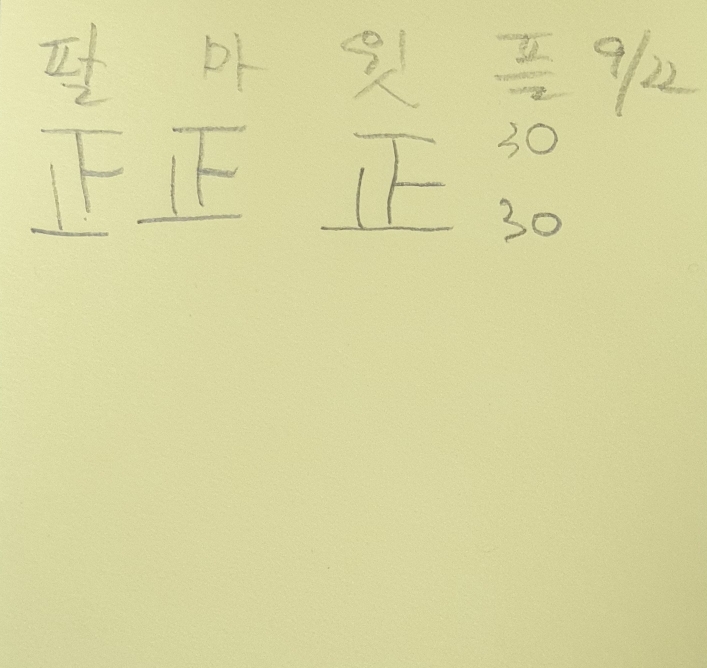 팔 마 윗 플 9/22
正 正 正 30
30